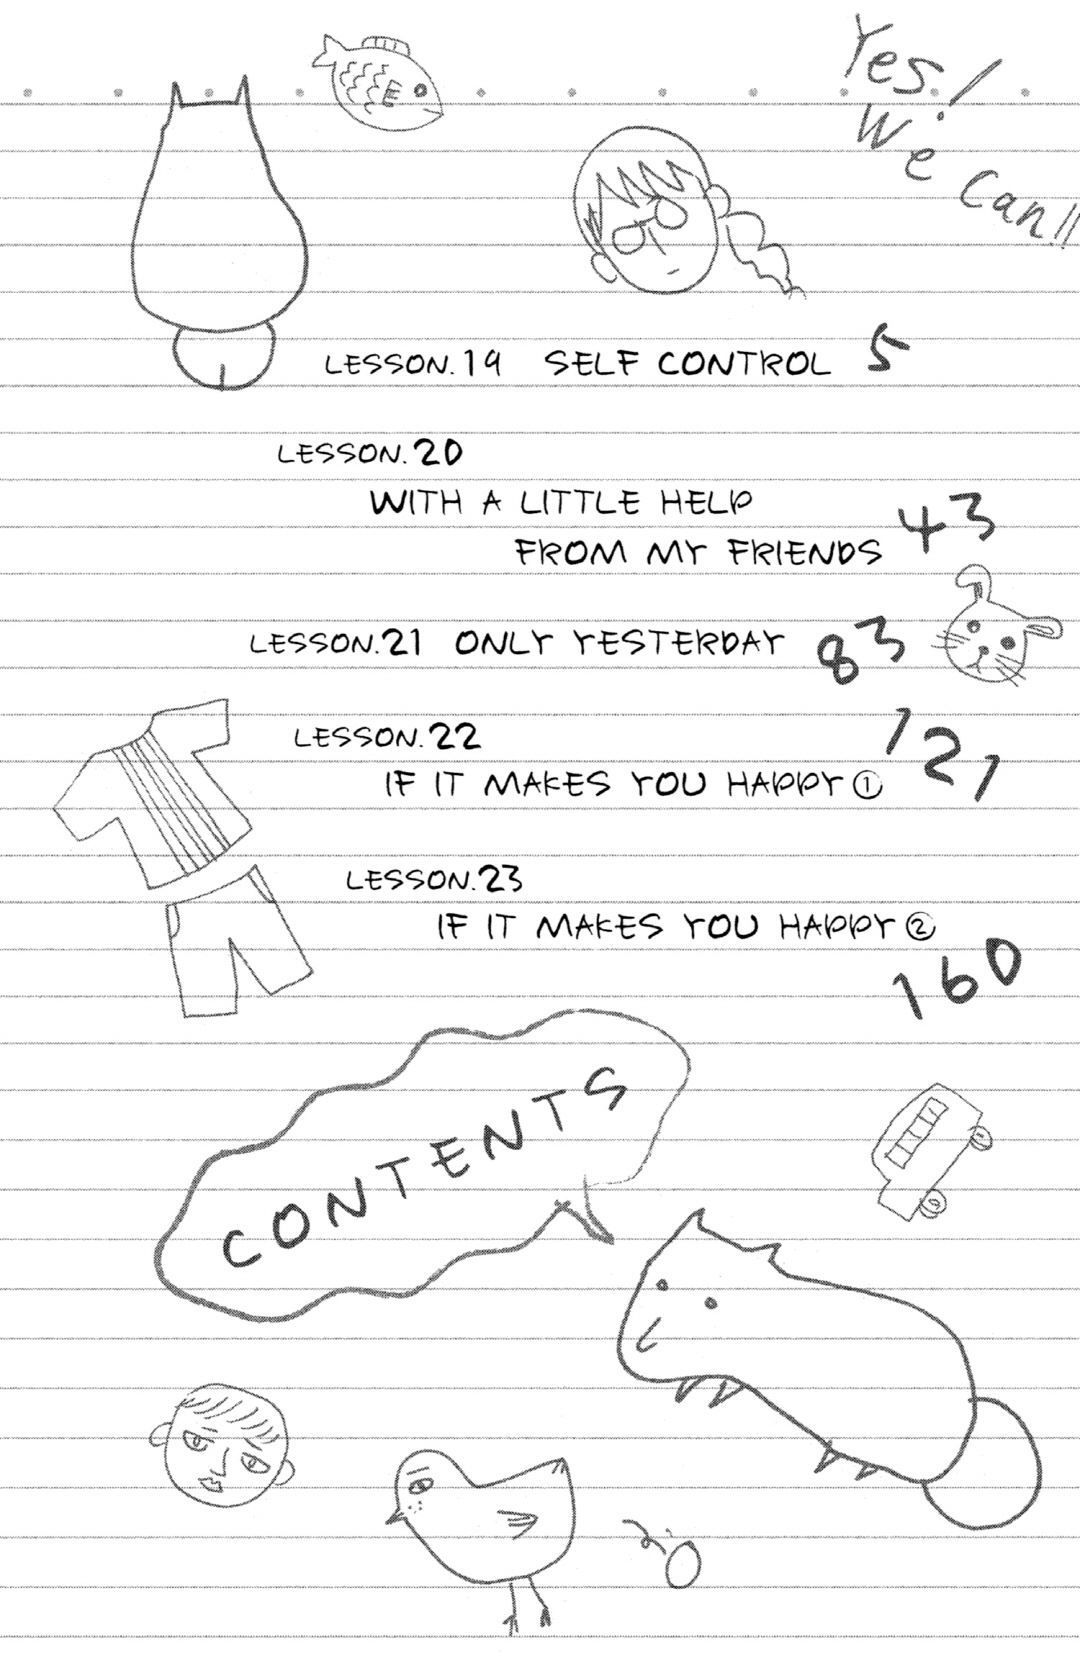 Yes!
We can!!
LESSON.19 SELF CONTROL 5
LESSON.20
WITH A LITTLE HELP
FROM MY FRIENDS 43
LESSON.21 ONLY YESTERDAY 83
LESSON.22
IF IT MAKES YOU HAPPY ① 121
LESSON.23
IF IT MAKES YOU HAPPY ②
160
CONTENTS